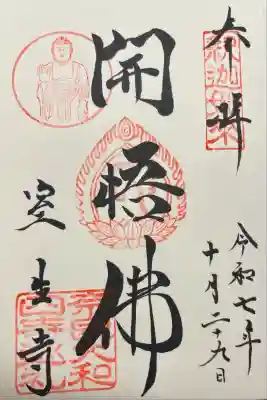 奉拝
令和七年
十月二十九日
開悟佛
室生寺